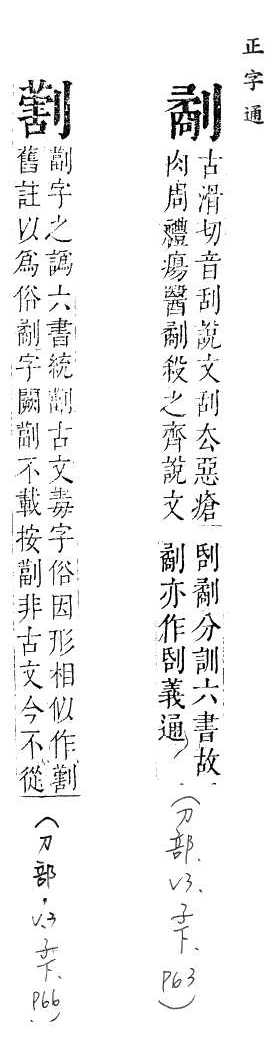 正字通
劀
古滑切音刮說文刮厺惡瘡
肉周禮瘍醫劀殺之齊說文
劀分訓六書故
劀亦作義通
(刀部、V3、子下、P63)
字之譌六書統古文毒字俗因形相似作
舊註以為俗劀字闕不載按非古文今不從
(刀部、V.3子下、P66)